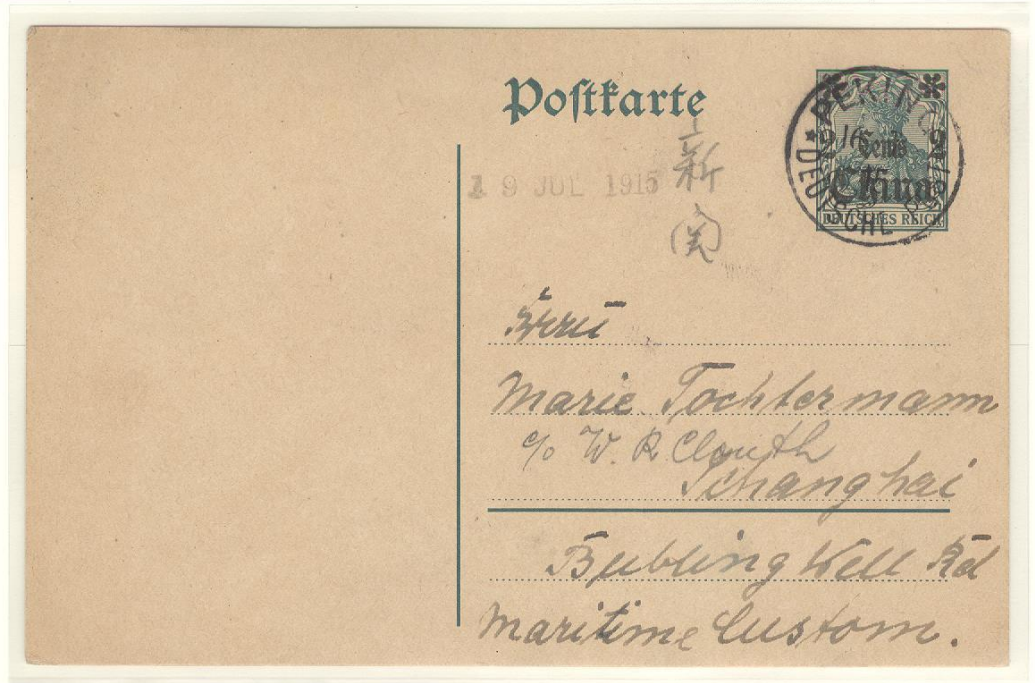 Postkarte
PEKING
DEUTSCHE
2 Cents 2
China
DEUTSCHES REICH
19 JUL 1915
新
関
Frau
Marie Tochtermann
c/o W. R. Clouth
Schanghai
Bubling Well Rd
Maritime Custom.